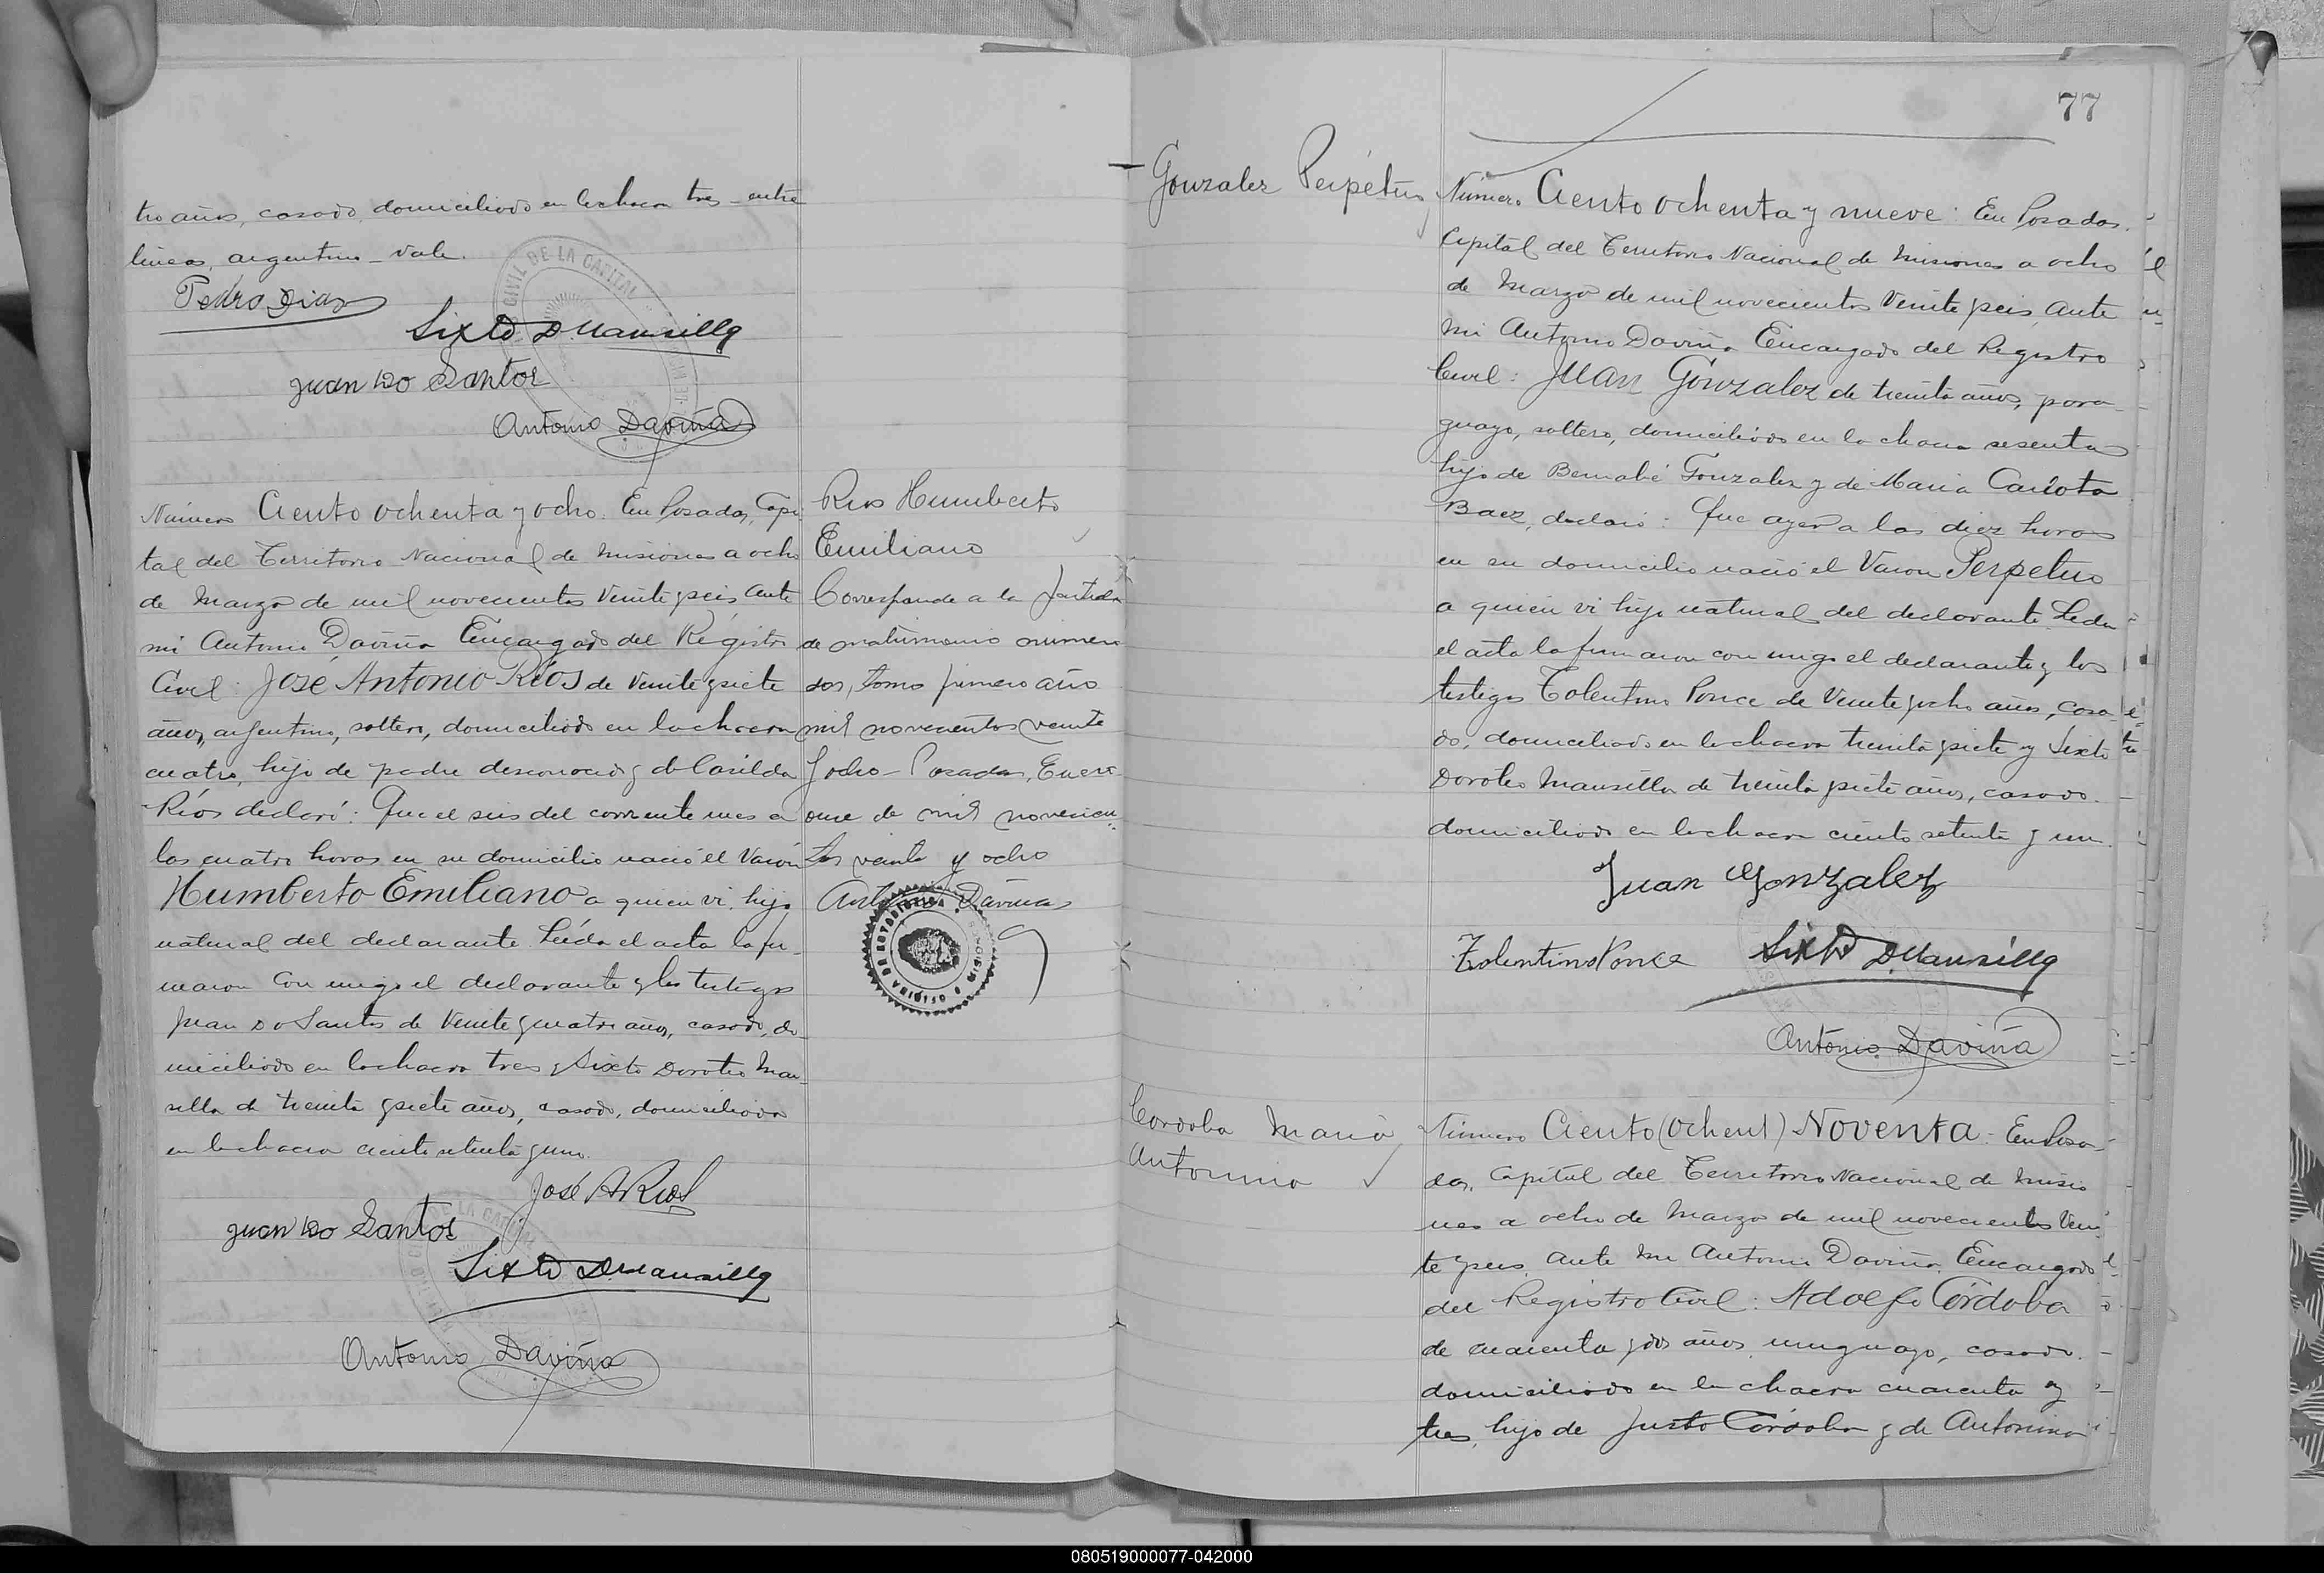 tro años, casado, domiciliado en la chacra tres - entre
lineas, argentino - vale.
Pedro Diaz
Sixto D Mansilla
Juan Do Santos
Antonio Daviña
Número Ciento ochenta y ocho. En Posadas, Capi
tal del Territorio Nacional de Misiones a ocho
de Marzo de mil novecientos veinte y seis ante
mi Antonio Daviña Encargado del Registro
Civil: José Antonio Ríos de veinte y siete
años, argentino, soltero, domiciliado en la chacra
cuatro, hijo de padre desconocido y de Casilda
Ríos declaró: Que el seis del corriente mes a
las cuatro horas en su domicilio nació el Varón
Humberto Emiliano a quien vi. hijo
natural del declarante. Leída el acta la fir-
maron con migo el declarante y los testigos
Juan Do Santos de veinte y cuatro años, casado, do-
miciliado en la chacra tres y Sixto Doroteo Man-
silla de treinta y siete años, casado, domiciliado
en la chacra ciento setenta y uno.
José A Rios
Juan Do Santos
Sixto D Mansilla
Antonio Daviña
Rios Humberto
Emiliano
Corresponde a la partida
de matrimonio número
dos, tomo primero año
mil novecientos veinte
y ocho - Posadas, Enero
once de mil novecien-
tos veinte y ocho
Antonio Daviña
77
Gonzalez Perpétuo
Número Ciento ochenta y nueve: En Posadas.
Capital del Territorio Nacional de Misiones a ocho
de Marzo de mil novecientos veinte y seis, ante
mi Antonio Daviña Encargado del Registro
Civil: Juan González de treinta años, para-
guayo, soltero, domiciliado en la chacra sesenta
hijo de Bernabé Gonzalez y de Maria Carlota
Baez, declaró: Que ayer a las diez horas
en su domicilio nació el Varon Perpetuo
a quien vi hijo natural del declarante. Leda
el acta la firmaron con migo el declarante y los
testigos Tolentino Ponce de veinte y ocho años, casa
do, domiciliado en la chacra treinta y siete y Sixto
Doroteo Mansilla de treinta y siete años, casado.
domiciliado en la chacra ciento setenta y uno.
Juan Gonzalez
Tolentino Ponce Sixto D Mansilla
Antonio Daviña
Cordoba Maria
Antonina
Número Ciento (ochent) Noventa: En Posa-
das, Capital del Territorio Nacional de Misio
nes a ocho de Marzo de mil novecientos vein
te y seis. ante mi Antonio Daviña, Encargado
del Registro Civil: Adolfo Córdoba
de cuarenta y dos años, uruguayo, casado.
domiciliado en la chacra cuarenta y
tres, hijo de Justo Córdoba y de Antonina
080519000077-042000